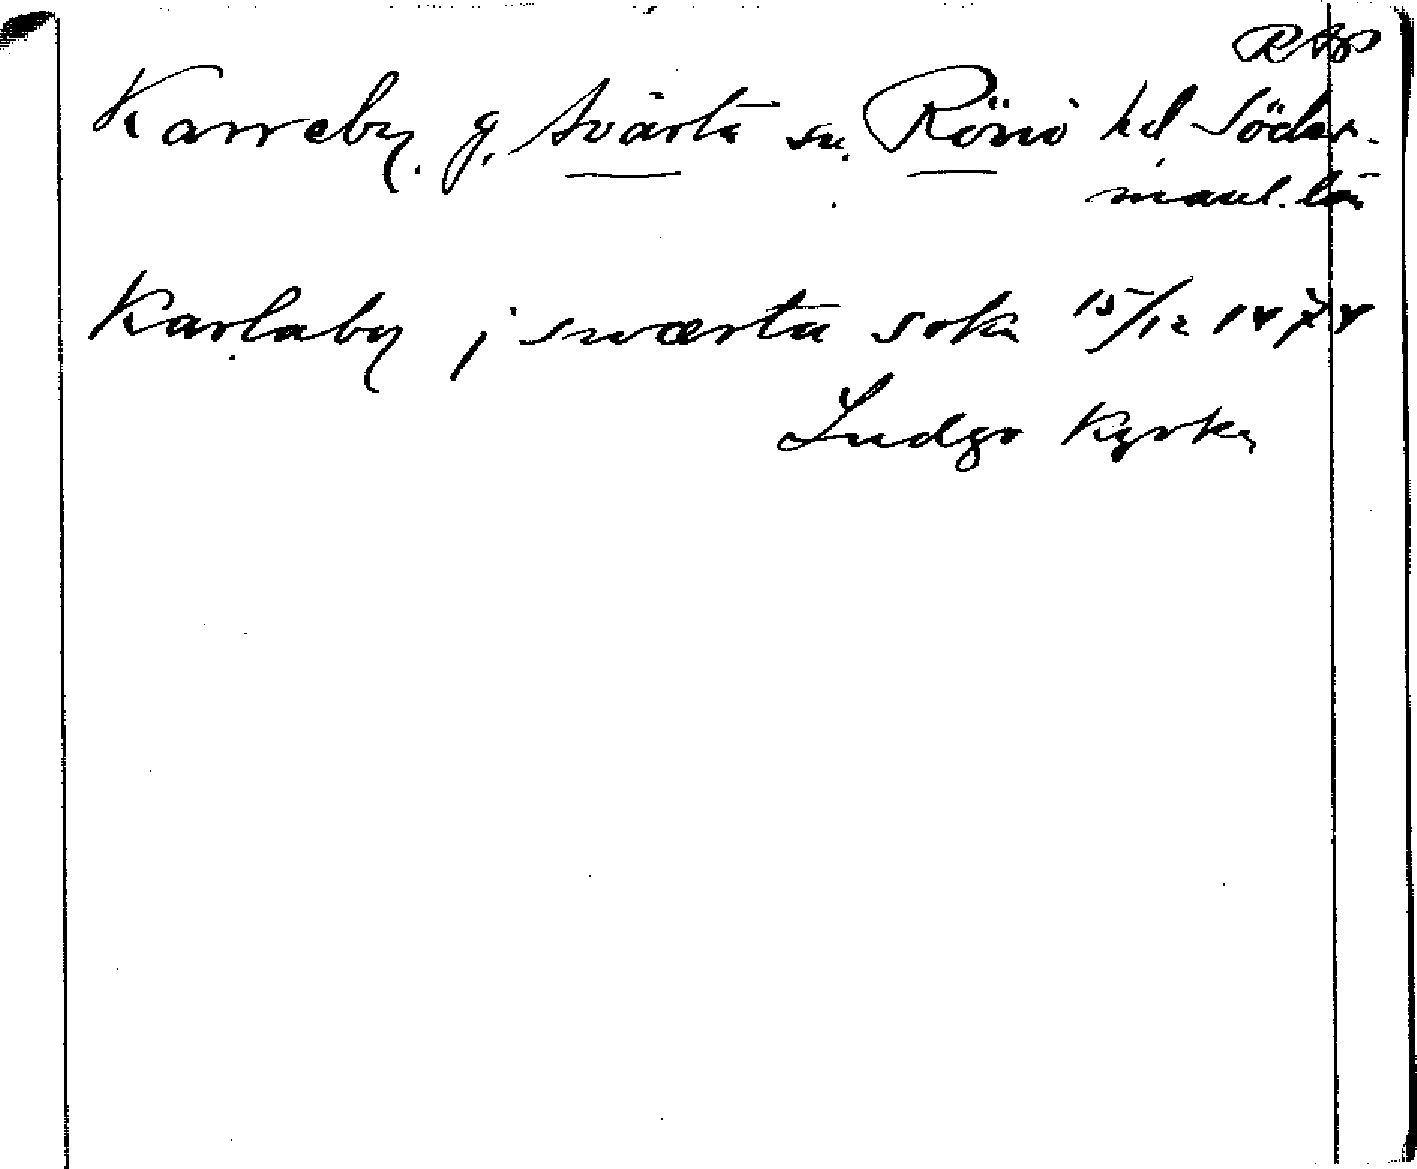 RAP
Karreby. g. Svärta sn. Rönö hd Söder-
manl. län
Karlaby j swærta sokn 15/12 1474
Ludgo kyrka